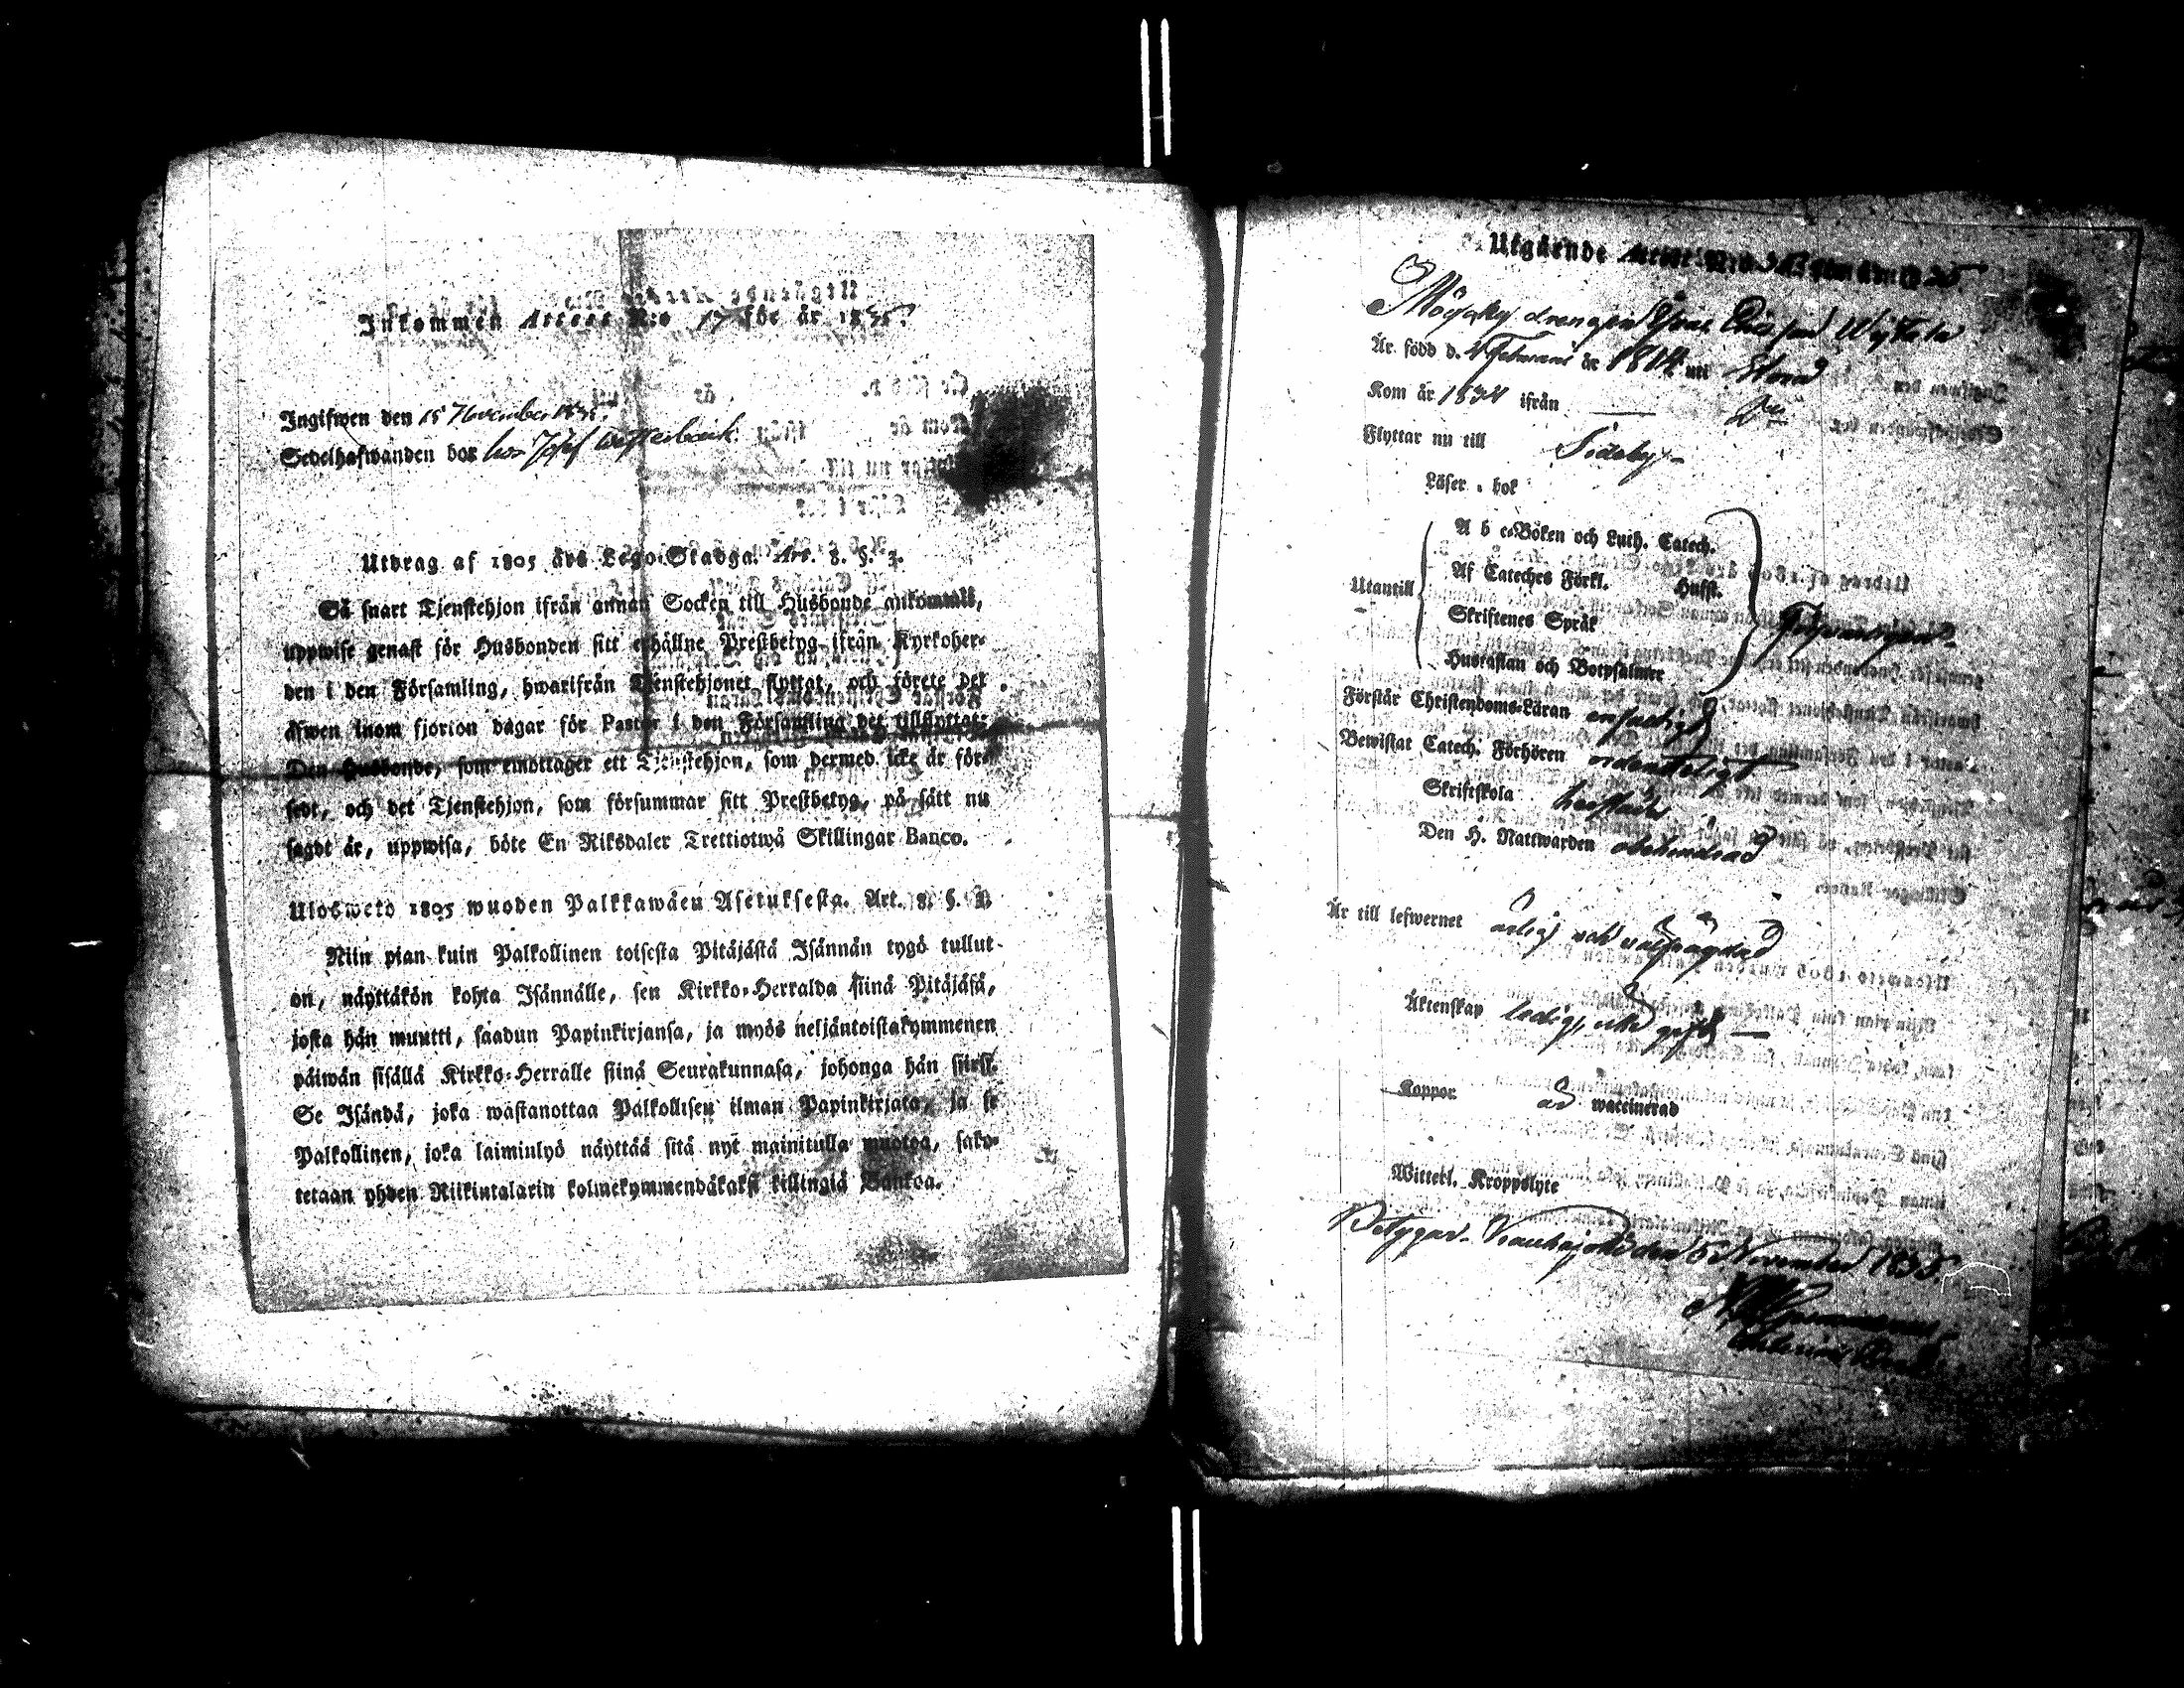 Inkommen Attest N:o 17 för år 1835.
Ingifwen den 15 November 1835.
Sedelhafwanden bor hos Josef Westerback
Utdrag af 1805 års Lego-Stadga. Art. 8. §. 3.
Så snart Tjenstehjon ifrån annan Socken till Husbonde ankommit,
uppwise genast för Husbonden sitt erhållne Prestbetyg ifrån Kyrkoher-
den i den Församling, hwarifrån Tjenstehjonet flyttat, och förete det
äfwen inom fjorton dagar för Pastor i den Församling det tillflyttat;
Den Husbonde, som emottager ett Tjenstehjon, som dermed icke är för-
sedt, och det Tjenstehjon, som försummar sitt Prestbetyg, på sätt nu
sagdt är, uppwisa, böte En Riksdaler Trettiotwå Skillingar Banco.
Ulosweto 1805 wuoden Palkkawäen Asetuksesta. Art. 8. §. 3.
Niin pian kuin Palkollinen toisesta Pitäjästä Isännän tygö tullut
on, näyttäkön kohta Isännälle, sen Kirkko-Herralda siinä Pitäjäsä,
josta hän muutti, saadun Papinkirjansa, ja myös neljäntoistakymmenen
päiwän sisällä Kirkko-Herralle siinä Seurakunnasa, johonga hän siirsi.
Se Isändä, joka wastanottaa Palkollisen ilman Papinkirjata, ja se
Palkollinen, joka laiminlyö näyttää sitä nyt mainitulla muotoa, sako-
tetaan yhden Riikintalarin kolmekymmendäkaksi killingiä Bankoa.
Utgående Attest N:o
drängen
Är född d. 4 Februarii år 1814 uti
Kom år 1834 ifrån
Flyttar nu till Sideby
Läser i bok
Utantill
A b c-Boken och Luth. Catech.
Af Cateches Förkl. Husst.
Skriftenes Språk
Hustaflan och Botpsalmer
Förstår Christendoms-Läran enfaldigt
Bewistat Catech. Förhören ordenteligt
Skriftskola härstädes
Den H. Nattwarden obehindrad
Är till lefwernet ärlig och wälfrägdad
Äktenskap ledig, icke gift
Koppor är waccinerad
Witterl. Kroppslyte
Betygar. Kauhajoki den 5 November 1835.